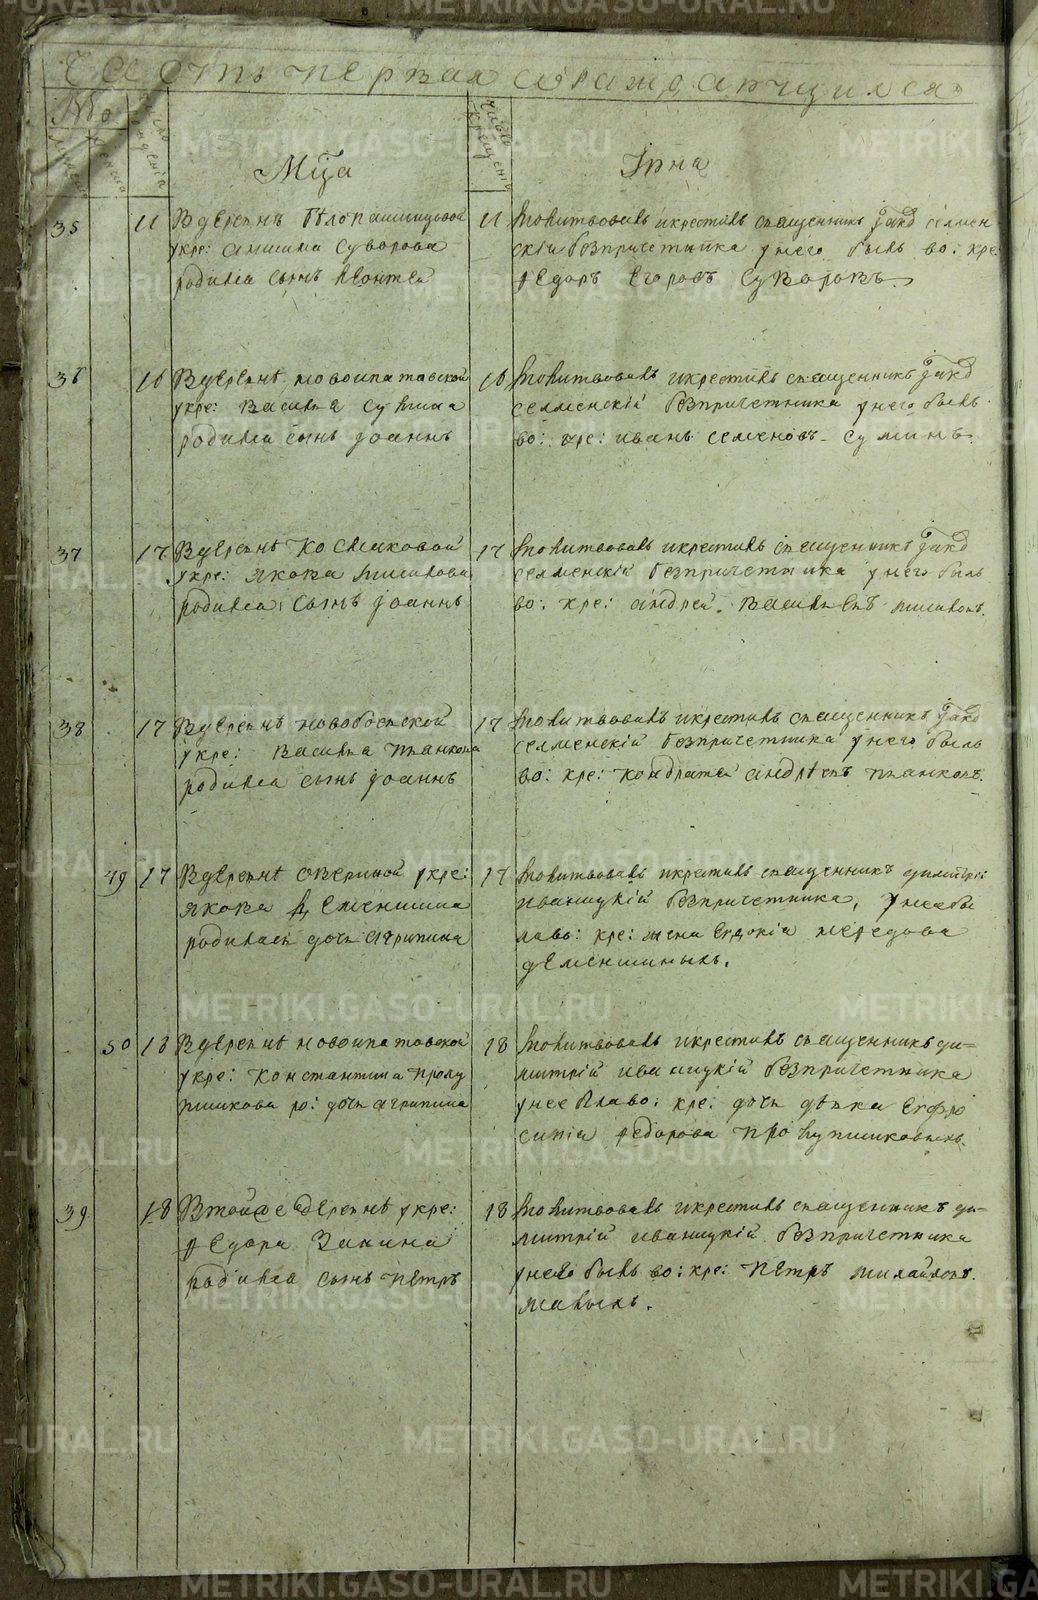 METRIKI.GASO-URAL.RU
Часть первая о раждающихся
№
Мца
Іюня
35
11
Вдеревнѣ Белопашинцовой
укре: Суворова
родился сынъ Леонтеи
11
молитвовалъ икрестилъ священникъ
безпричетника унего былъ во: кре:
Федоръ Егоровъ Суворовъ
36
16
Вдеревнѣ новоипатовской
укре: Василья Сумина
родился сынъ Іоаннъ
16
молитвовалъ икрестилъ священникъ
селменскій безпричетника унего былъ
во: кре: иванъ семеновъ суминъ
37
17
Вдеревнѣ Космаковой
укре: Якова
родился сынъ Іоаннъ
17
молитвовалъ икрестилъ священникъ
селменскій безпричетника унего былъ
во: кре: андрей васильевъ
38
17
Вдеревнѣ новобоевской
укре: Василья Панкова
родился сынъ Іоаннъ
17
молитвовалъ икрестилъ священникъ
селменскій безпричетника унего былъ
во: кре: кондратеи андреевъ панковъ
49
17
Вдеревнѣ Овериной укре:
Якова Деменшина
родилась дочь агрипина
17
молитвовалъ икрестилъ священникъ димитріи
иваницкій безпричетника, унея бы
лаво: кре: жена Евдокія
деменшиныхъ.
50
18
Вдеревнѣ новоипатовской
укре: Константина Пролу
пшикова ро: дочь агрипина
18
молитвовалъ икрестилъ священникъ ди=
митрій иваницкій безпричетника
унее блаво: кре: дочь дѣвка Евфро
синія федорова пролупшиковыхъ
39
18
Втойже деревнѣ укре:
Федора Зырина
родился сынъ Петръ
18
молитвовалъ икрестилъ священникъ ди=
митрій иваницкій безпричетника
унего былъ во: кре: Петръ михайловъ